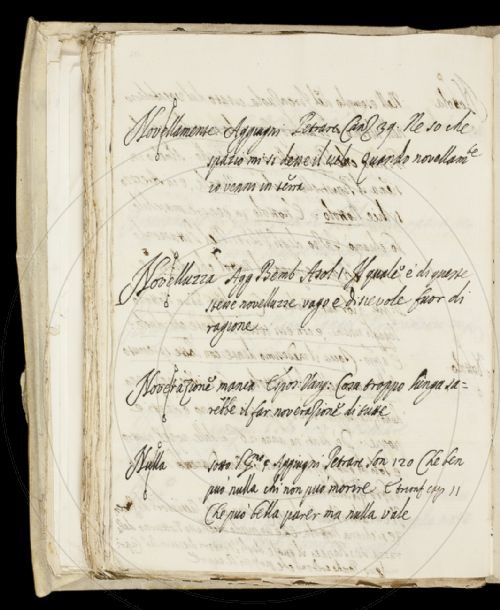 Novellamente Aggiugni Petrarc. Canz. 39. Ne so che
spazio mi si desse il cielo Quando novellam.te
io venni in terra
Novelluzza Agg. Bemb. Asol. 1. Il quale è di queste
steve novelluzze vago e disievole fuor di
ragione
Noverazione manca Espos. Vang: Cosa troppo lunga sa=
rebbe il far noverazione di tutte
Nulla sotto l Aggiugni Petrarc. Son. 120 Che ben
può nulla chi non può morire E trionf. cap. 11
Che può bella parer ma nulla vale